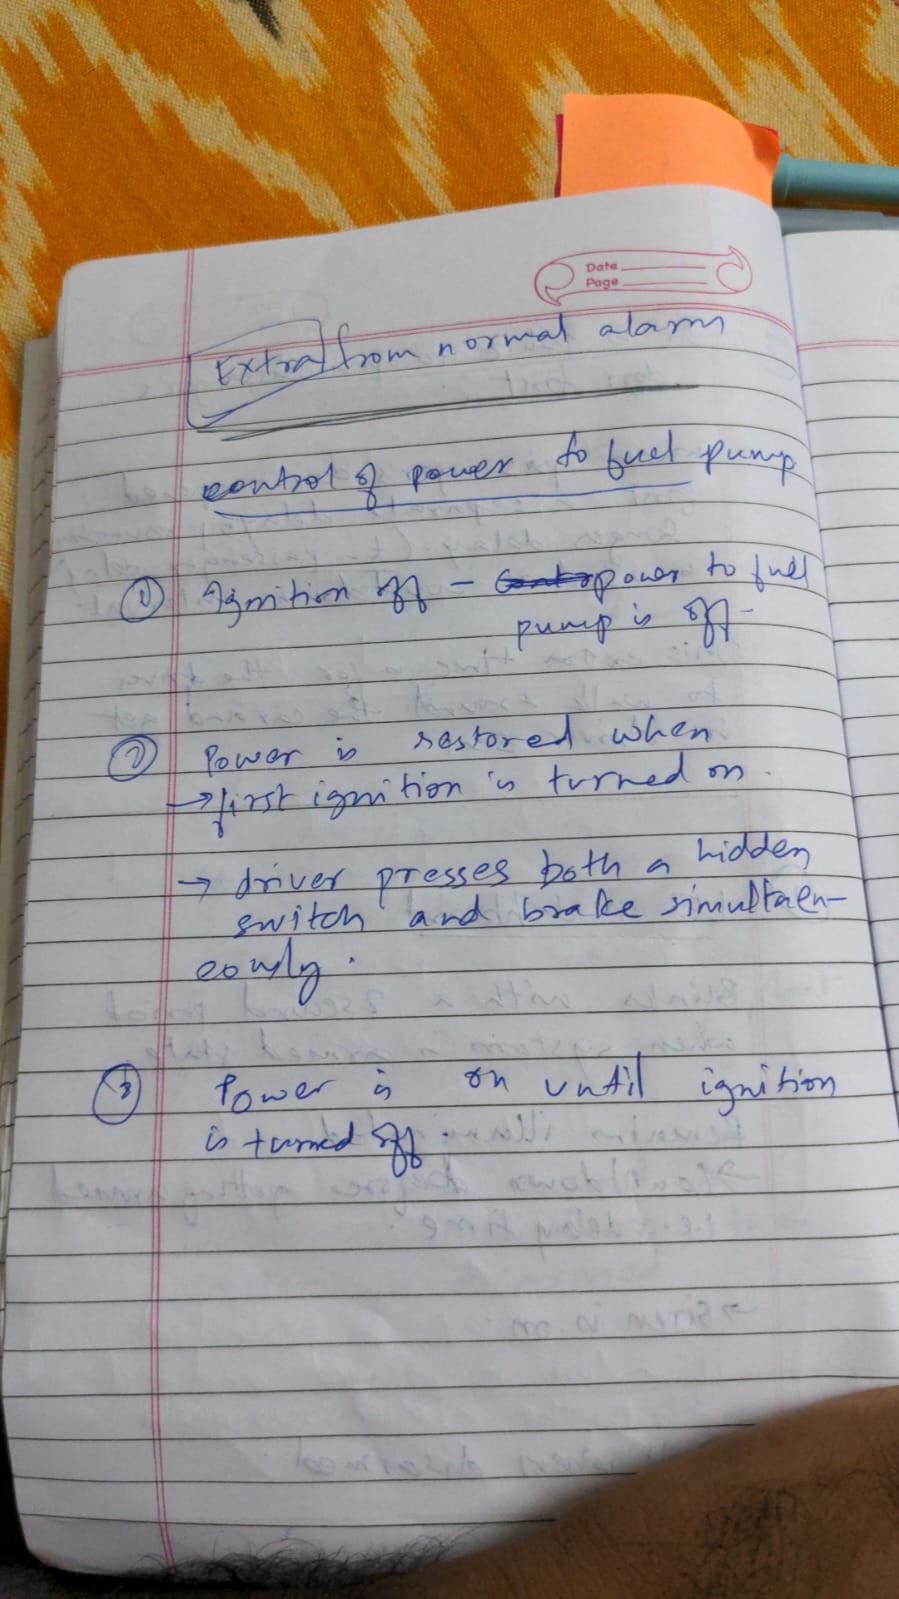 Date
Page
Extra from normal alarm
control of power to fuel pump
① Ignition off - power to fuel
pump is off -
② Power is restored when
→ first ignition is turned on.
→ driver presses both a hidden
switch and brake simultaen-
eously.
③ Power is on until ignition
is turned off.